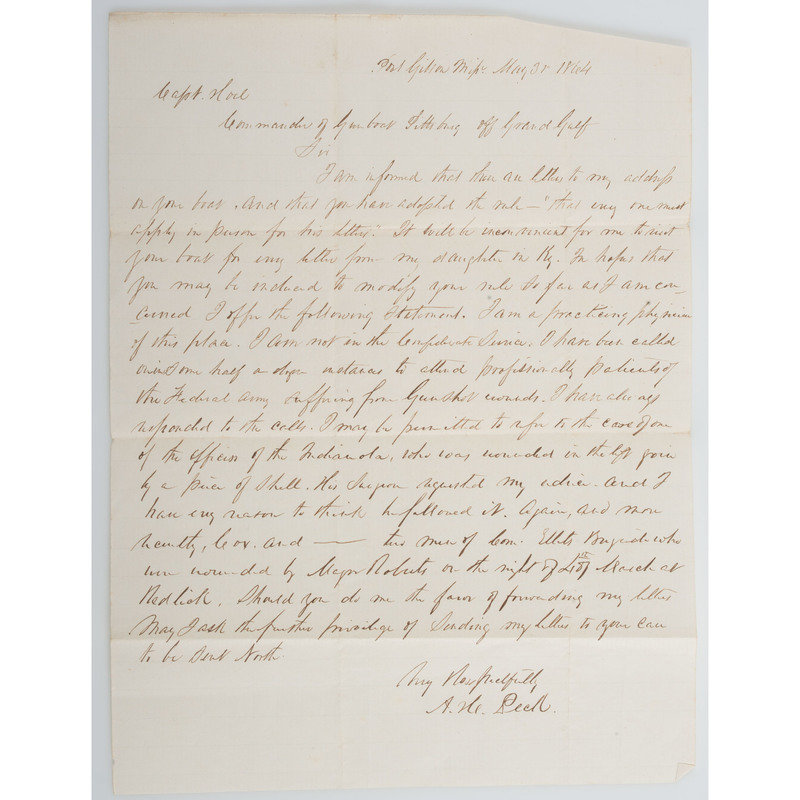 Port Gibson Mipi. May 30 1864
Capt. Hoel
Commander of Gunboat Pittsburg off Grand Gulf
Sir
I am informed that there are letters to my address
on your boat. And that you have adopted the rule – "that every one must
apply in person for his letters." It will be inconvenient for me to visit
your boat for every letter from my daughter in Ky. In hopes that
you may be induced to modify your rule so far as I am con-
cerned I offer the following statement. I am a practicing physician
of this place. I am not in the Confederate Service. I have been called
in some half a dozen instances to attend professionally patients of
the Federal army suffering from Gunshot wounds. I have always
responded to the calls. I may be permitted to refer to the case of one
of the officers of the Indianola, who was wounded in the left groin
by a piece of Shell. His Surgeon requested my advice. And I
have every reason to think he followed it. Again, and more
recently, Cox. and —— two men of Com. Ellets Brigade who
were wounded by Major Roberts on the night of March at
Redlick. Should you do me the favor of forwarding my letters
May I ask the further privilege of Sending my letters to your care
to be Sent North.
Very Respectfully
A. H. Peck.